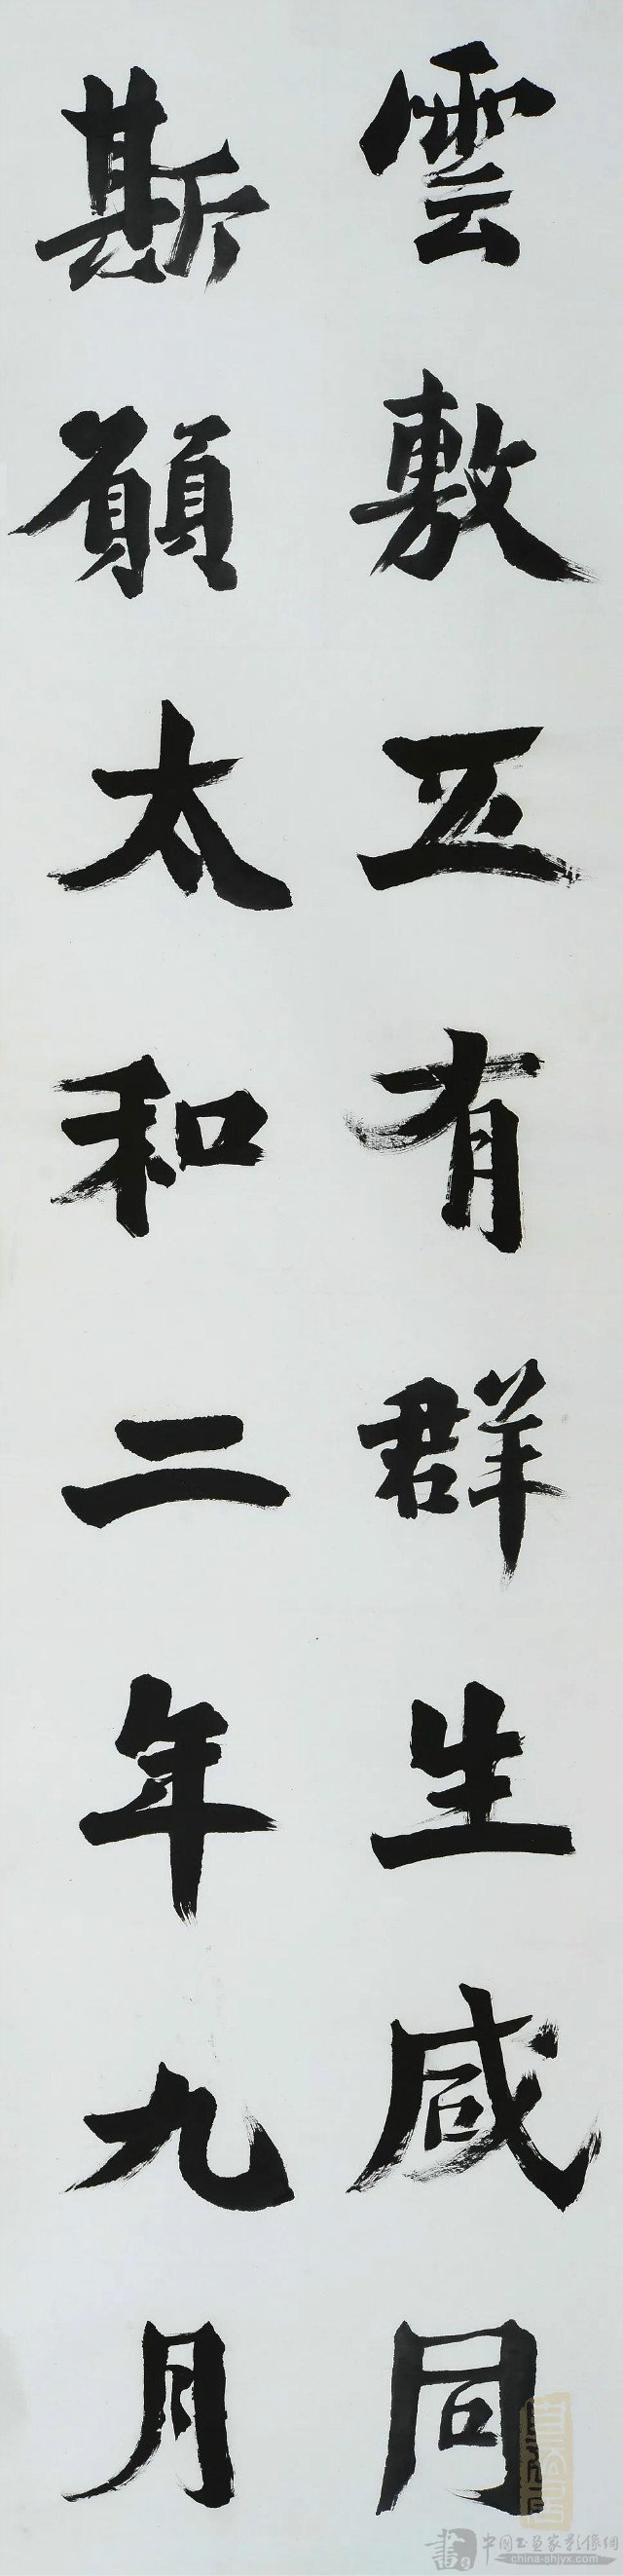 雲敷五有群生咸同
斯願太和二年九月
中國书画家影像網
china-shjyx.com